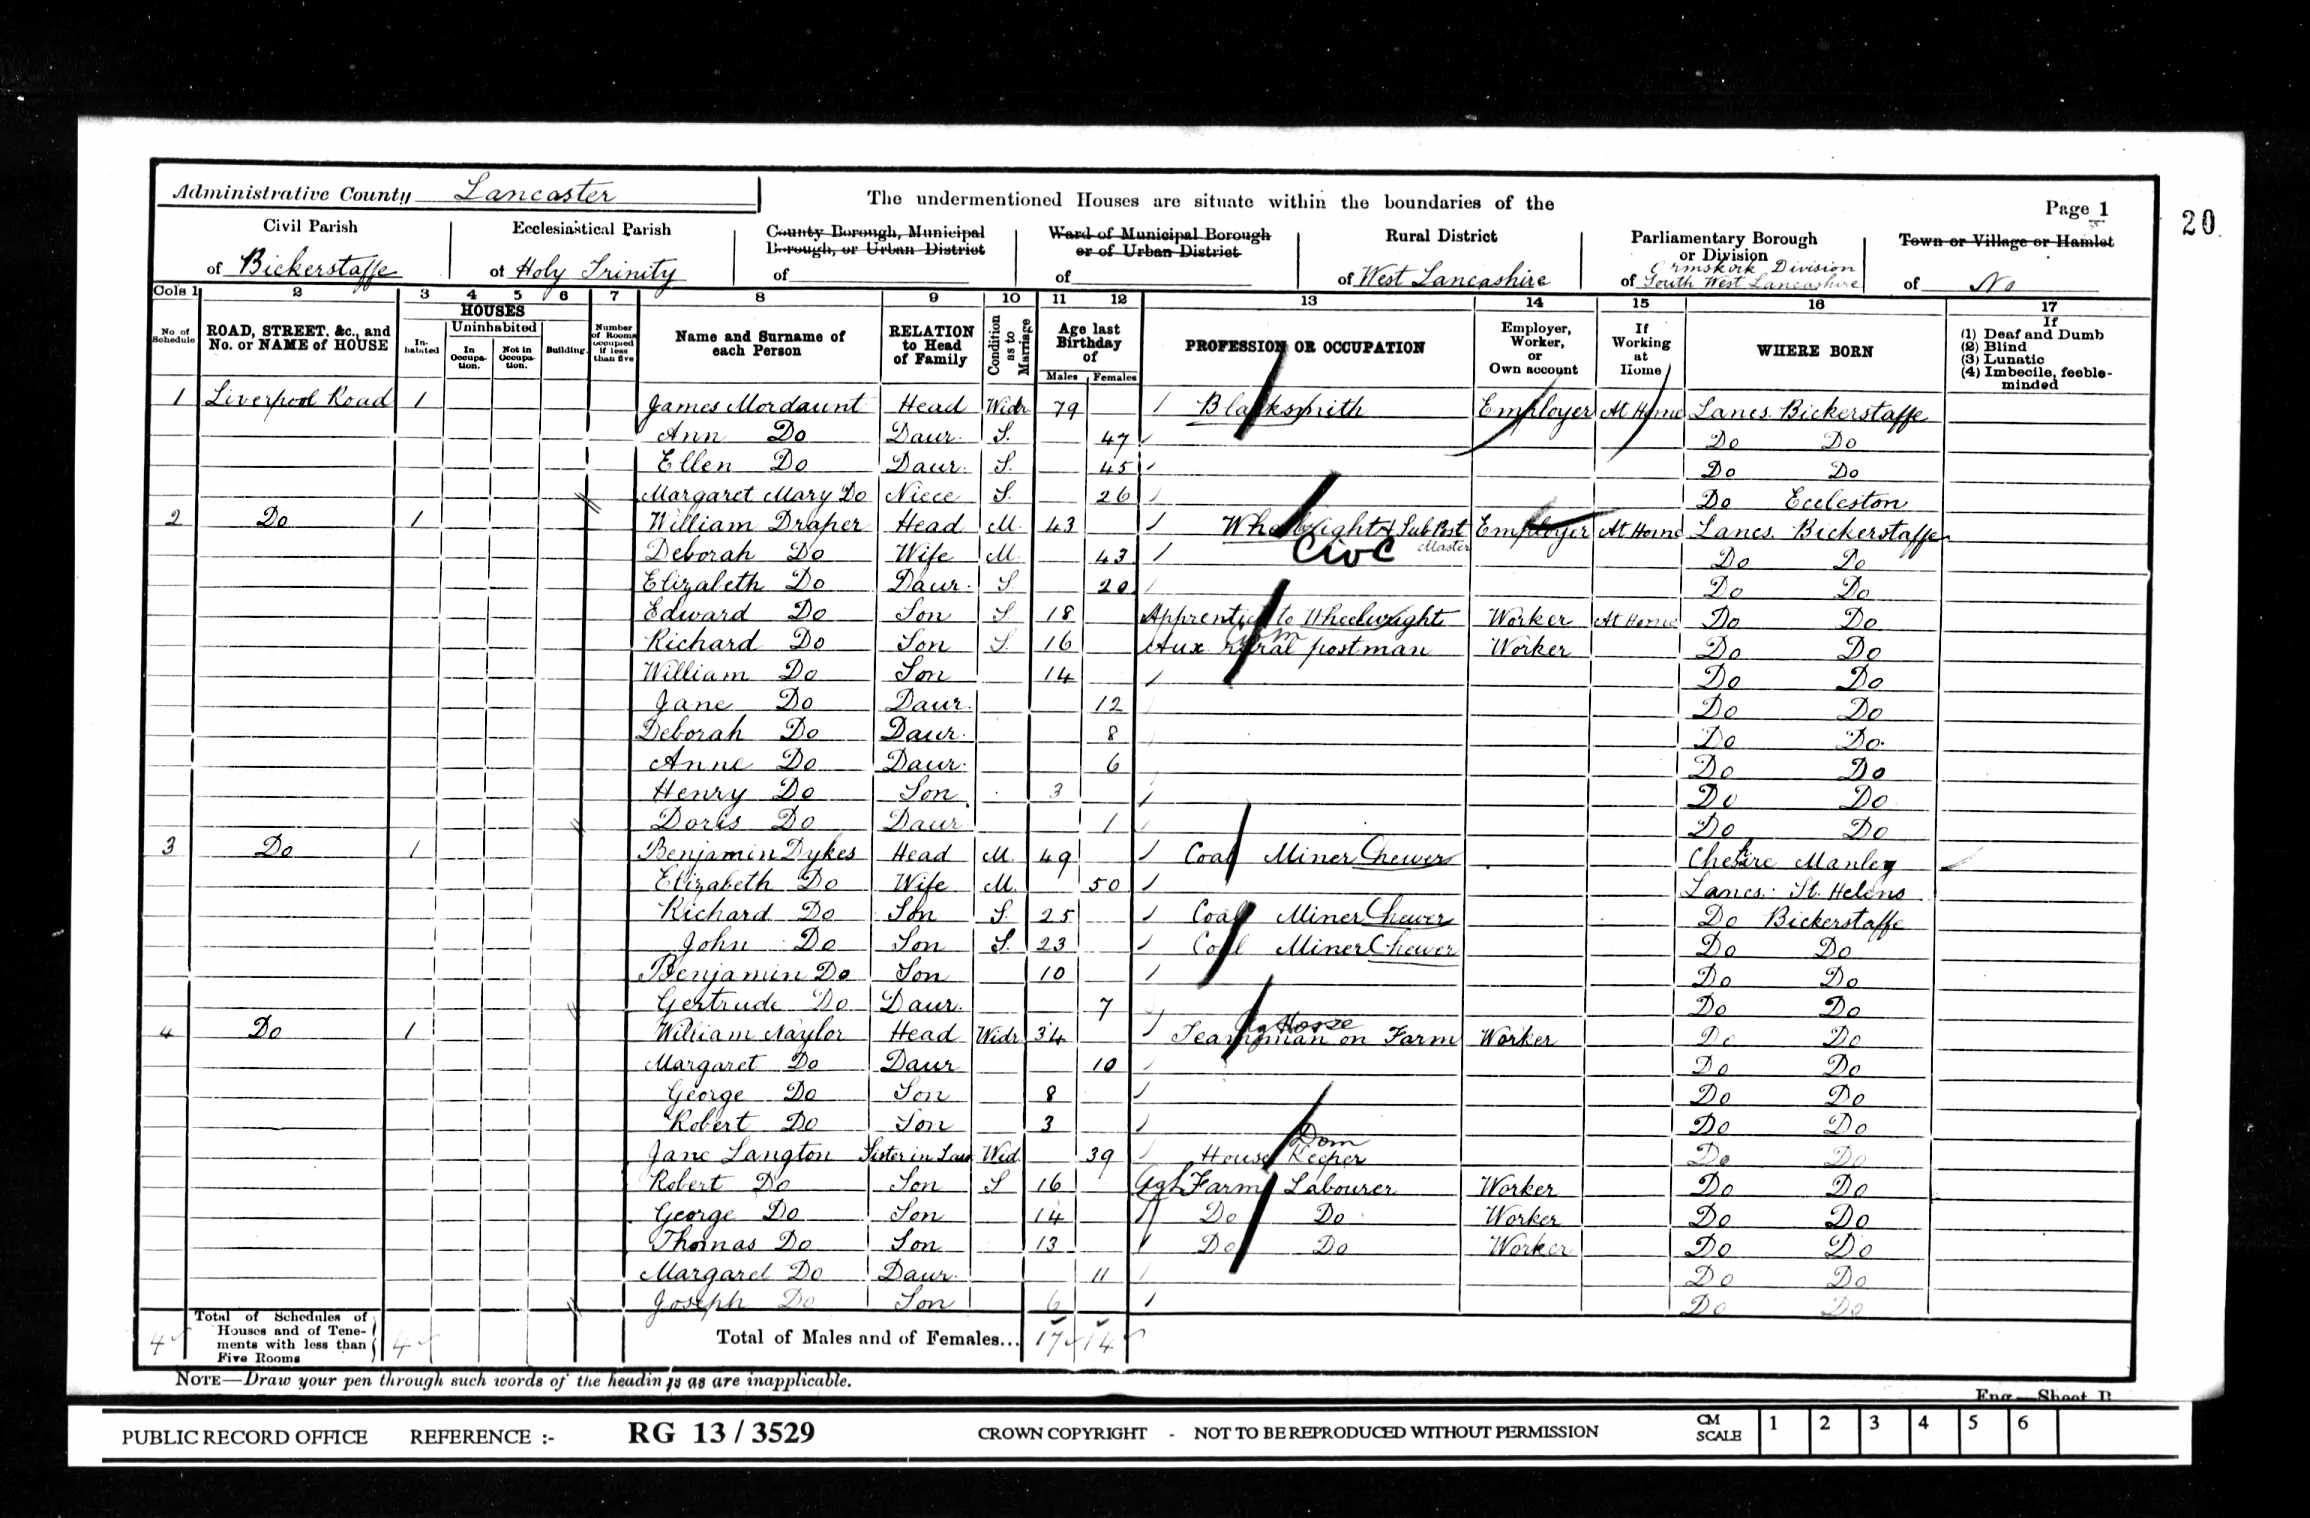 Administrative County Lancaster
The undermentioned Houses are situate within the boundaries of the
Page 1
20
Civil Parish of Bickerstaffe
Ecclesiastical Parish of Holy Trinity
County Borough, Municipal Borough, or Urban District of
Ward of Municipal Borough or of Urban District of
Rural District of West Lancashire
Parliamentary Borough or Division of Ormskirk Division South West Lancashire
Town or Village or Hamlet of No
Cols 1 2 3 4 5 6 7 8 9 10 11 12 13 14 15 16 17
No. of Schedule
ROAD, STREET, &c., and No. or NAME of HOUSE
HOUSES
In-habited
Uninhabited
In Occupa-tion.
Not in Occupa-tion.
Building.
Number of Rooms occupied if less than five
Name and Surname of each Person
RELATION to Head of Family
Condition as to Marriage
Age last Birthday of
Males Females
PROFESSION OR OCCUPATION
Employer, Worker, or Own account
If Working at Home
WHERE BORN
If
(1) Deaf and Dumb
(2) Blind
(3) Lunatic
(4) Imbecile, feeble-minded
1 Liverpool Road 1 James Mordaunt Head Widr 79 Blacksmith Employer At Home Lancs. Bickerstaffe
Ann Do Daur. S. 47 Do Do
Ellen Do Daur. S. 45 Do Do
Margaret Mary Do Niece S. 26 Do Eccleston
2 Do 1 William Draper Head M. 43 Wheelwright & Sub Post Master Employer At Home Lancs. Bickerstaffe
Deborah Do Wife M 43 Civc Do Do
Elizabeth Do Daur. S 20 Do Do
Edward Do Son S 18 Apprentice to Wheelwright Worker At Home Do Do
Richard Do Son S. 16 Aux rural postman Worker Do Do
William Do Son 14 Do Do
Jane Do Daur. 12 Do Do
Deborah Do Daur. 8 Do Do
Anne Do Daur. 6 Do Do
Henry Do Son 3 Do Do
Doris Do Daur 1 Do Do
3 Do 1 Benjamin Dykes Head M. 49 Coal Miner Hewer Cheshire Manley
Elizabeth Do Wife M. 50 Lancs. St. Helens
Richard Do Son S. 25 Coal Miner Hewer Do Bickerstaffe
John Do Son S. 23 Coal Miner Hewer Do Do
Benjamin Do Son 10 Do Do
Gertrude Do Daur. 7 Do Do
4 Do 1 William Naylor Head Widr 34 Horse Teamsman on Farm Worker Do Do
Margaret Do Daur 10 Do Do
George Do Son 8 Do Do
Robert Do Son 3 Do Do
Jane Langton Sister in Law Wid 39 House Keeper Dom Do Do
Robert Do Son S 16 Agl Farm Labourer Worker Do Do
George Do Son 14 Do Do Worker Do Do
Thomas Do Son 13 Do Do Worker Do Do
Margaret Do Daur. 11 Do Do
Joseph Do Son 6 Do Do
4 Total of Schedules of Houses and of Tene-ments with less than Five Rooms 4
Total of Males and of Females... 17 14
NOTE—Draw your pen through such words of the headings as are inapplicable.
Eng.—Sheet B
PUBLIC RECORD OFFICE REFERENCE :- RG 13 / 3529 CROWN COPYRIGHT - NOT TO BE REPRODUCED WITHOUT PERMISSION
CM SCALE 1 2 3 4 5 6